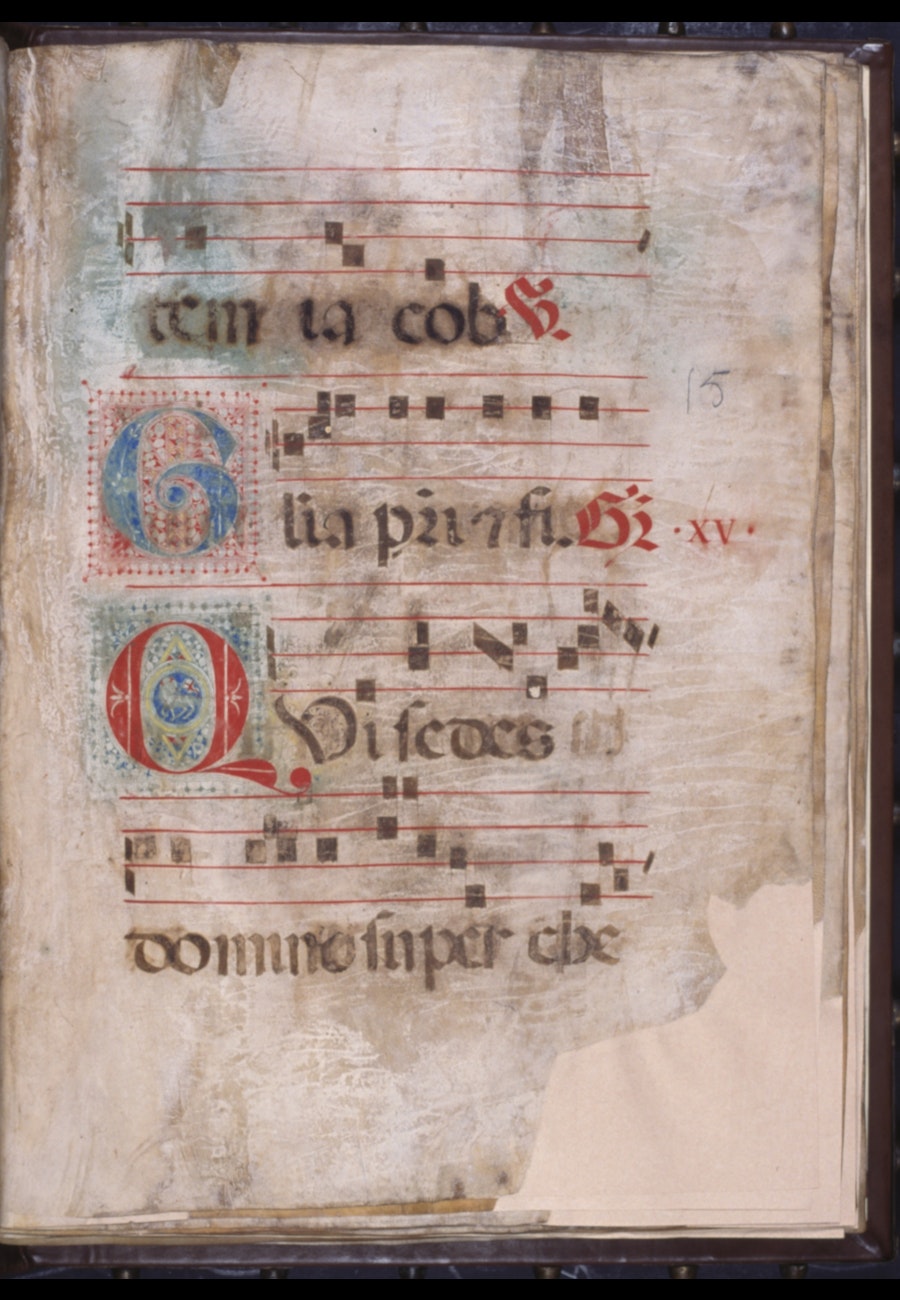 tem ia cob V.
15
Glia pri ⁊ fi. Gr. ·XV·
QVi sedes
domine super che